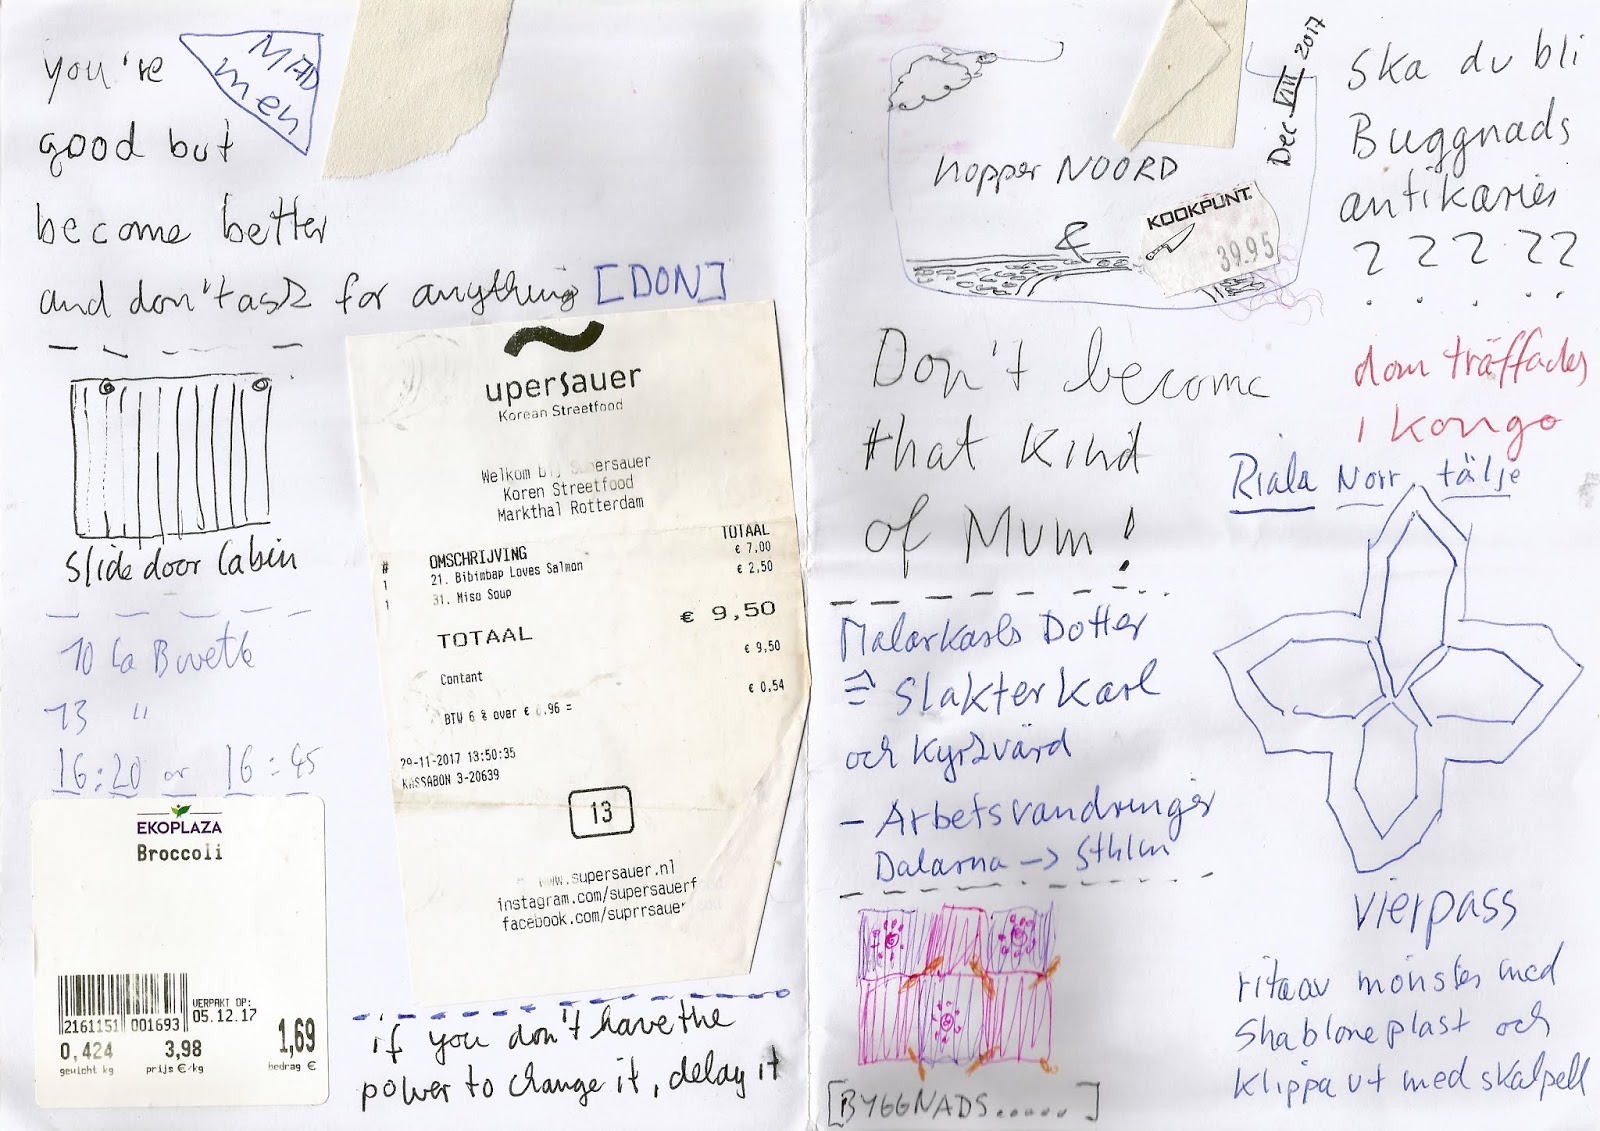 you're
good but
become better
and don't ask for anything [DON]
MAD
men
slide door Cabin
10 La Buvette
13 "
16:20 or 16:45
EKOPLAZA
Broccoli
2161151 001693
VERPAKT OP:
05.12.17
0,424 3,98 1,69
gewicht kg prijs €/kg bedrag €
upersauer
Korean Streetfood
Welkom bij Supersauer
Koren Streetfood
Markthal Rotterdam
# OMSCHRIJVING TOTAAL
1 21. Bibimbap Loves Salmon € 7,00
1 31. Miso Soup € 2,50
TOTAAL € 9,50
Contant € 9,50
BTW 6 % over € .96 = € 0,54
29-11-2017 13:50:35
KASSABON 3-20639
13
www.supersauer.nl
instagram.com/supersauerf
facebook.com/suprrsauer
if you don't have the
power to change it, delay it
hopper NOORD
Dec VIII 2017
KOOKPUNT
39.95
Ska du bli
Buggnads
antikaries
? ? ? ? ?
dom träffades
i kongo
Don't become
that kind
of Mum!
Riala Norrtälje
Malarkarls Dotter
= Slakterkarl
och Kyrkvärd
- Arbetsvandringar
Dalarna -> Sthlm
[BYGGNADS.....]
vierpass
rita av mönster med
Shablonplast och
Klippa ut med skalpell